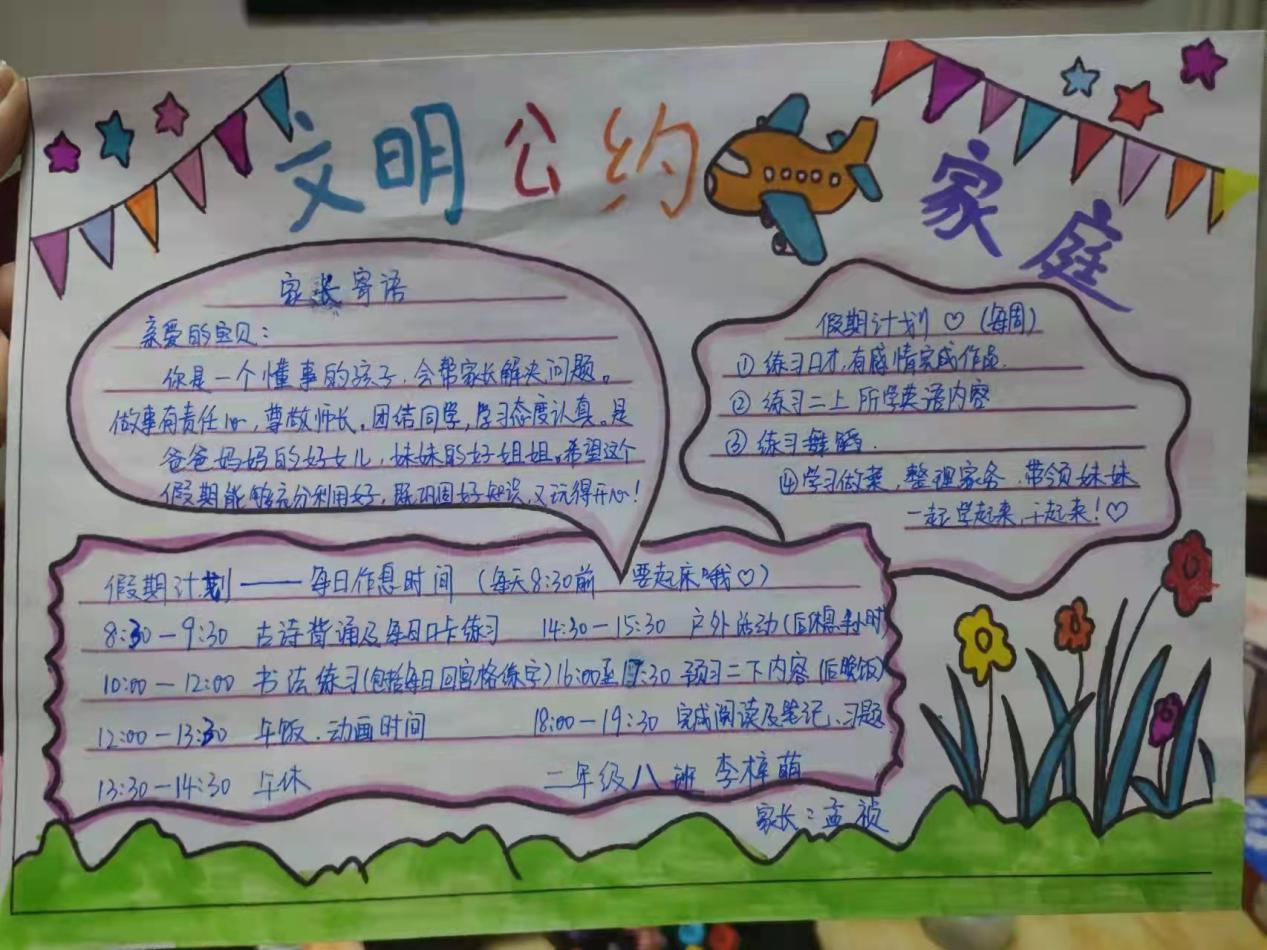 文明公约
家庭
家长寄语
亲爱的宝贝：
你是一个懂事的孩子，会帮家长解决问题。
做事有责任心，尊敬师长。团结同学，学习态度认真。是
爸爸妈妈的好女儿，妹妹的好姐姐。希望这个
假期能够充分利用好，既巩固好知识，又玩得开心！
假期计划♡（每周）
①练习口才，有感情完成作品．
②练习二上所学英语内容
③练习舞蹈．
④学习做菜，整理家务．带领妹妹
一起学起来，干起来！♡
假期计划——每日作息时间（每天8:30前要起床哦♡）
8:30—9:30 古诗背诵及每日口卡练习 14:30—15:30 户外活动（后休息半小时
10:00—12:00 书法练习（包括每日回宫格练字）16:00至17:30 预习二下内容（后晚饭）
12:00—13:30 午饭．动画时间 18:00—19:30 完成阅读及笔记、习题
13:30—14:30 午休 二年级八班 李梓萌
家长：孟祯